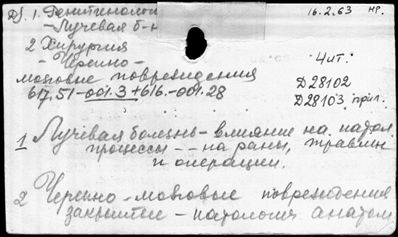 Дб. 1. Рентгенологи 16.2.63 нр.
- Лучевая б-н
2 Хирургия
- Черепно- 4 чит.
мозговые повреждения
617.51-001.3+616.-001.28 Д28102
Д28103 прил.
1 Лучевая болезнь - влияние на патол.
процессы - - на раны, травмы
и операции.
2 Черепно-мозговые повреждения
закрытые - патологич. анатом